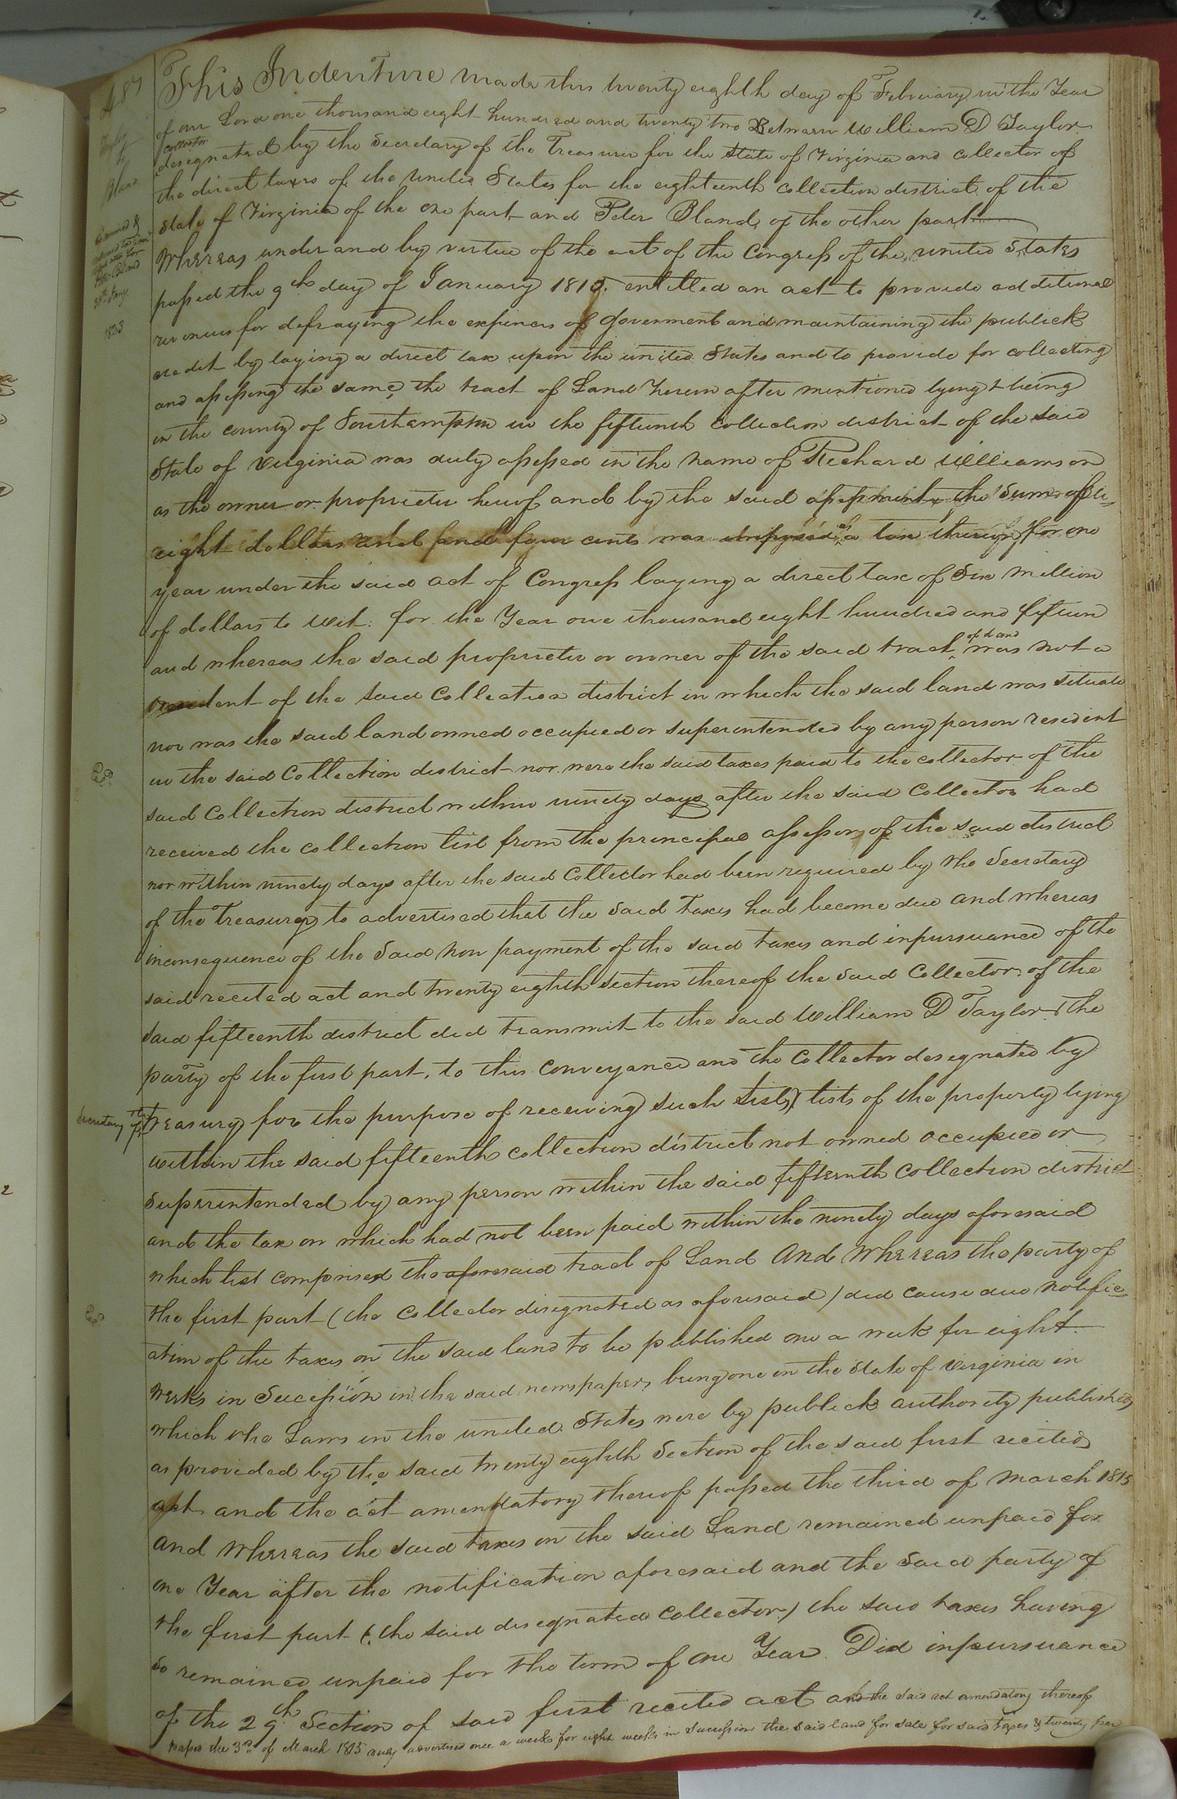 487
Bland
1823
This Indenture made this twenty eighth day of February in the Year
of our Lord one thousand eight hundred and twenty two Between William D Taylor
collector
designated by the Secretary of the Treasurer for the State of Virginia and Collector of
the direct taxes of the United States for the eighteenth collection district of the
State of Virginia of the one part and Peter Bland of the other part
Whereas under and by virtue of the act of the Congress of the united States
passed the 9th day of January 1815. entitled an act to provide additional
revenues for defraying the expences of Goverment and maintaining the publick
credit by laying a direct tax upon the united States and to provide for collecting
and assessing the same, the tract of Land herein after mentioned lying & being
in the county of Southampton in the fifteenth Collection district of the said
State of Virginia was duly assessed in the name of Richard Williamson
as the owner or proprietor hereof and by the said assessment, the Sum of
eight dollars and four cents was imposed as a tax thereof for one
year under the said act of Congress laying a direct tax of Six million
of dollars to wit. for the Year one thousand eight hundred and fifteen
and whereas the said proprietor or owner of the said tract of Land was not a
resident of the said Collection district in which the said land was situate
nor was the said land owned occupied or superintended by any person resident
in the said Collection district nor were the said taxes paid to the collector of the
said Collection district within ninety days after the said Collector had
received the collection list from the principal assessor of the said district
nor within ninety days after the said Collector had been required by the Secretary
of the Treasurey to advertised that the said taxes had become due and whereas
inconsequence of the said non payment of the said taxes and inpursuance of the
said recited act and twenty eighth section thereof the said Collector of the
said fifteenth district did transmit to the said William D Taylor (the
party of the first part, to this conveyance and the Collector designated by
Secretary of the
treasury for the purpose of receiving such lists) lists of the property lying
within the said fifteenth collection district not owned occupied or
Superintended by any person within the said fifteenth Collection district
and the tax on which had not been paid within the ninety days aforesaid
which list comprised the aforesaid tract of Land And Whereas the party of
the first part (the Collector designated as aforesaid) did cause due notific
ation of the taxes on the said land to be published one a week for eight
weeks in Sucession in the said newspapers being one in the State of Virginia in
which the Laws in the united States were by publick authority published
as provided by the said twenty eighth Section of the said first recited
act and the act amendatory thereof passed the third of March 1815
and Whereas the said taxes on the said Land remained unpaid for
one Year after the notification aforesaid and the said party of
the first part (the said designated Collector) the said taxes having
so remained unpaid for the term of one Year Did inpursuance
of the 29th Section of said first recited act and the said act amendatory thereof
passed the 3rd of March 1815 duly advertised once a week for eight weeks in Succession the said land for sale for said taxes & twenty per